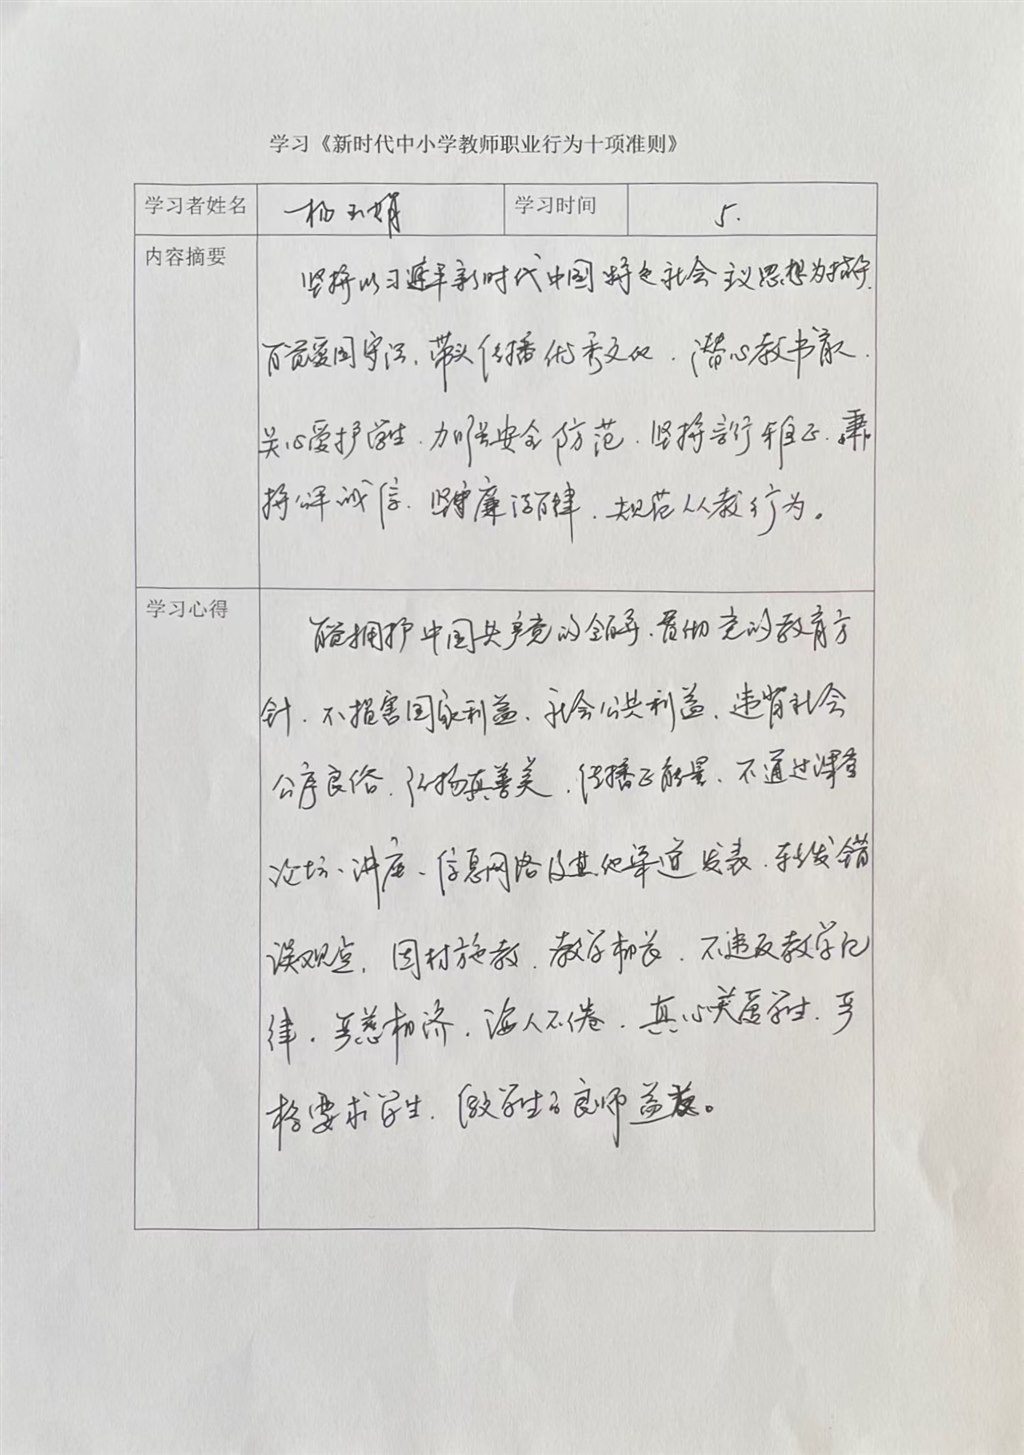 学习《新时代中小学教师职业行为十项准则》
学习者姓名 杨玉娟 学习时间 5.
内容摘要
坚持以习近平新时代中国特色社会主义思想为指导.
自觉爱国守法、带头传播优秀文化、潜心教书育人、
关心爱护学生、加强安全防范、坚持言行雅正、秉
持公平诚信、坚守廉洁自律、规范从教行为。
学习心得
自觉拥护中国共产党的领导、贯彻党的教育方
针、不损害国家利益、社会公共利益、违背社会
公序良俗、弘扬真善美、传播正能量、不通过课堂
论坛、讲座、信息网络及其他渠道发表、转发错
误观点，因材施教、教学相长、不违反教学纪
律，严慈相济、诲人不倦、真心关爱学生、严
格要求学生、做学生的良师益友。